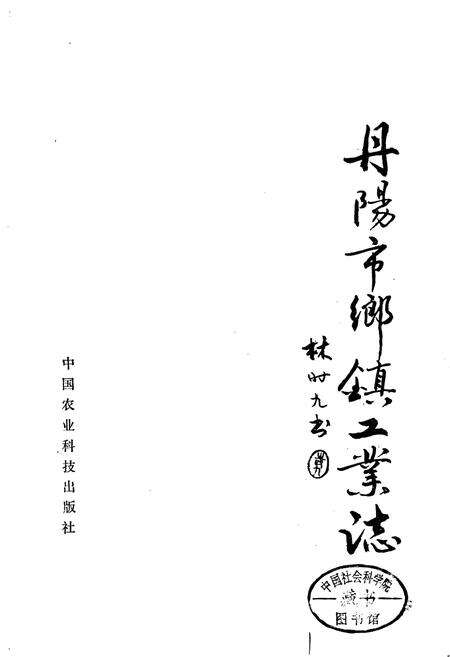 丹陽市鄉鎮工業誌
林时九书
中国农业科技出版社
中国社会科学院
藏书
图书馆